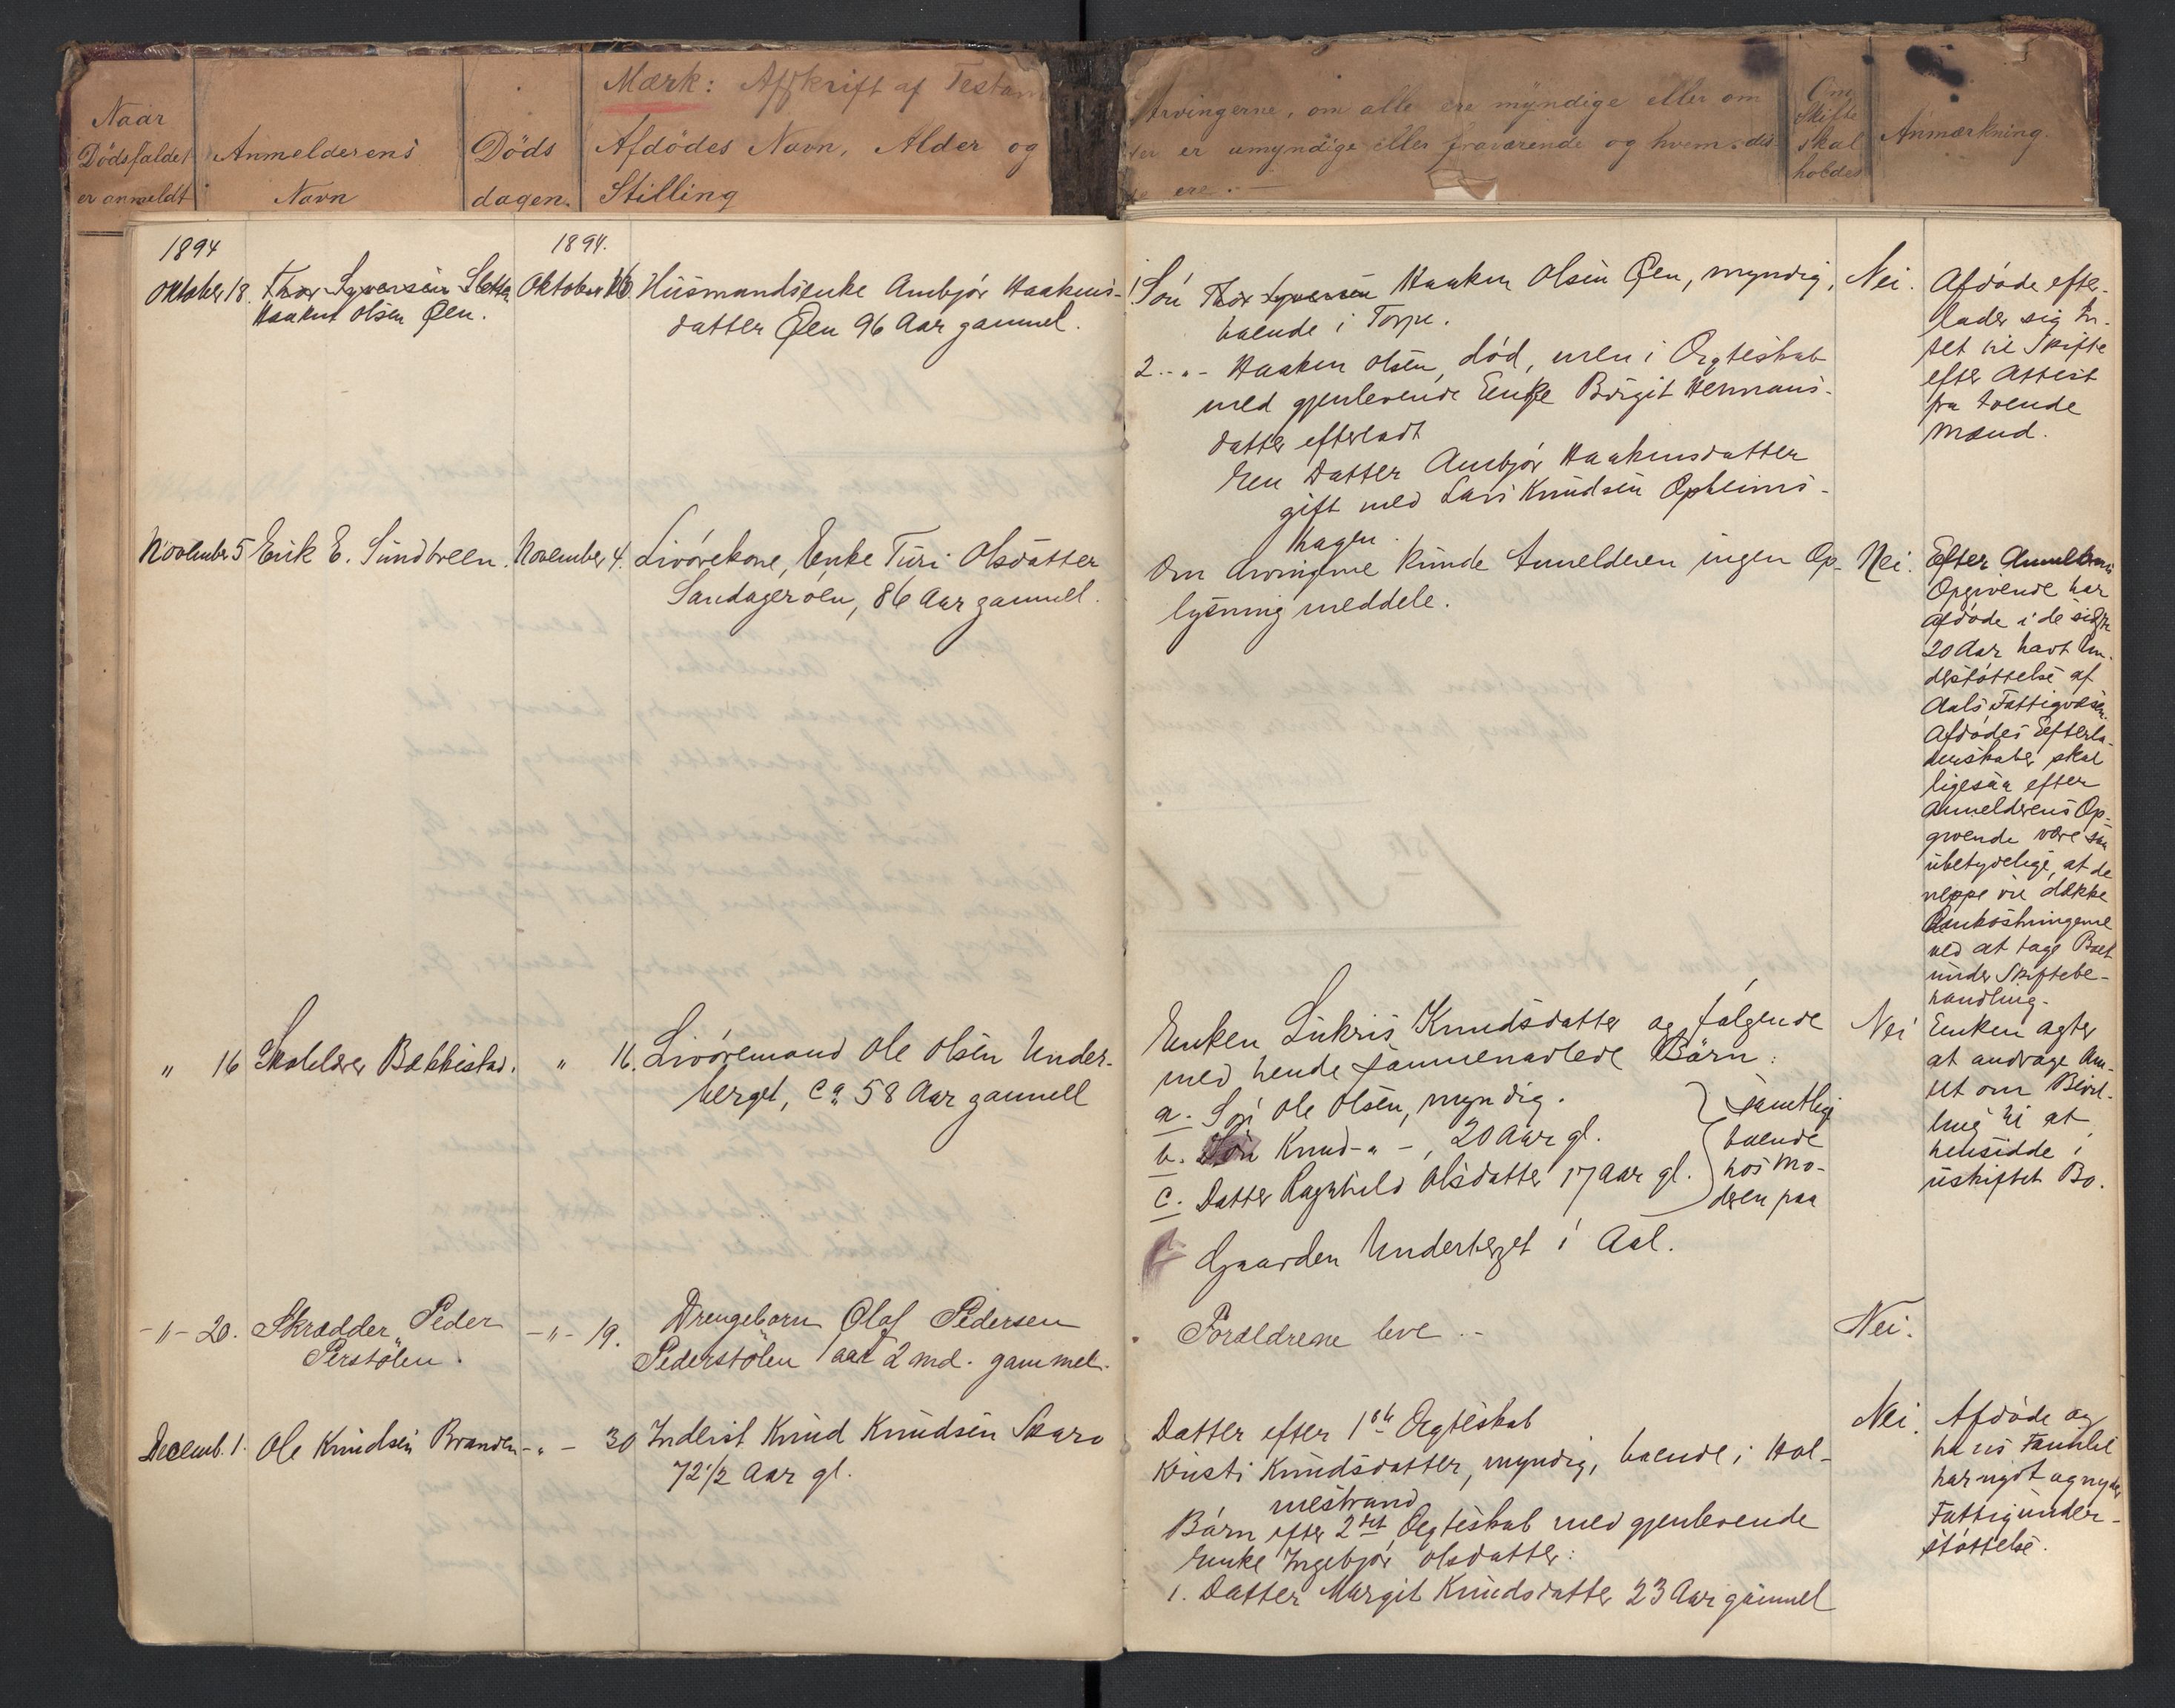 Naar
Dödsfaldet
er anmeldt
Anmelderens
Navn
Döds
dagen.
Mærk: Afskrift af Testam
Afdödes Navn, Alder og
Stilling
Arvingerne, om alle ere myndige eller om
er umyndige eller fraværende og hvem
ere.
Om
Skifte
skal
holdes
Anmærkning.
1894
Oktober 18.
Thor Syversen Sletto
Haaken Olsen Øen.
1894.
Oktober 16.
Huusmandsenke Ambjör Haakens-
datter Øen 96 Aar gammel.
1 Sön Thor Syversen Haaken Olsen Øen, myndig,
boende i Torpe.
2 -"- Haaken Olsen, död, men i Ægteskab
med gjenlevende Enke Birgit Hermans-
datter efterladt
Een Datter Ambjör Haakensdatter
gift med Lars Knudsen Opheims-
hagen.
Nei.
Afdöde efter-
lader sig In-
tet til Skifte
efter Attest
fra tvende
Mænd.
November 5
Erik E. Sundbreen.
November 4.
Livörekone, Enke Turi Olsdatter
Sandagerøen, 86 Aar gammel.
Om Arvingerne kunde Anmelderen ingen Op-
lysning meddele.
Nei.
Efter Anmelderens
Opgivende har
afdöde i de sidste
20 Aar havt Un-
derstöttelse af
Aals Fattigvæsen.
Afdödes Efterla-
denskaber skal
ligesaa efter
Anmelderens Op-
givende være saa
ubetydelige, at de
neppe vil dække
Omkostningerne
ved at tage Boet
under Skiftebe-
handling.
" 16
Skoldver Bakkestad.
" 16.
Livöremand Ole Olsen Under-
berget, Ca. 58 Aar gammel
Enken Sukris Knudsdatter og fölgende
med hende sammenavlede Börn:
a. Sön Ole Olsen, myndig.
b. Sön Knud -"-, 20 Aar gl.
c. Datter Ragnhild Olsdatter 17 Aar gl.
samtlige
boende
hos Mo-
deren paa
Gaarden Underberget i Aal.
Nei
Enken agter
at andrage Am-
tet om Bevil-
ling til at
hensidde i
uskiftet Bo.
-"- 20.
Skrædder Peder
Perstölen.
-"- 19.
Drengebarn Olaf Pedersen
Pederstölen 1 aar 2 md. gammel.
Forældrene leve.
Nei.
Decemb. 1.
Ole Knudsen Branden
-"- 30
Inderst Knud Knudsen Skaro
72 1/2 Aar gl.
Datter efter 1ste Ægteskab
Kristi Knudsdatter, myndig, boende i Hol-
mestrand
Börn efter 2det Ægteskab med gjenlevende
Enke Ingebjör Olsdatter:
1. Datter Margit Knudsdatter 23 Aar gammel
Nei.
Afdöde og
hans Familie
har nydt og nyder
Fattigunder-
stöttelse.